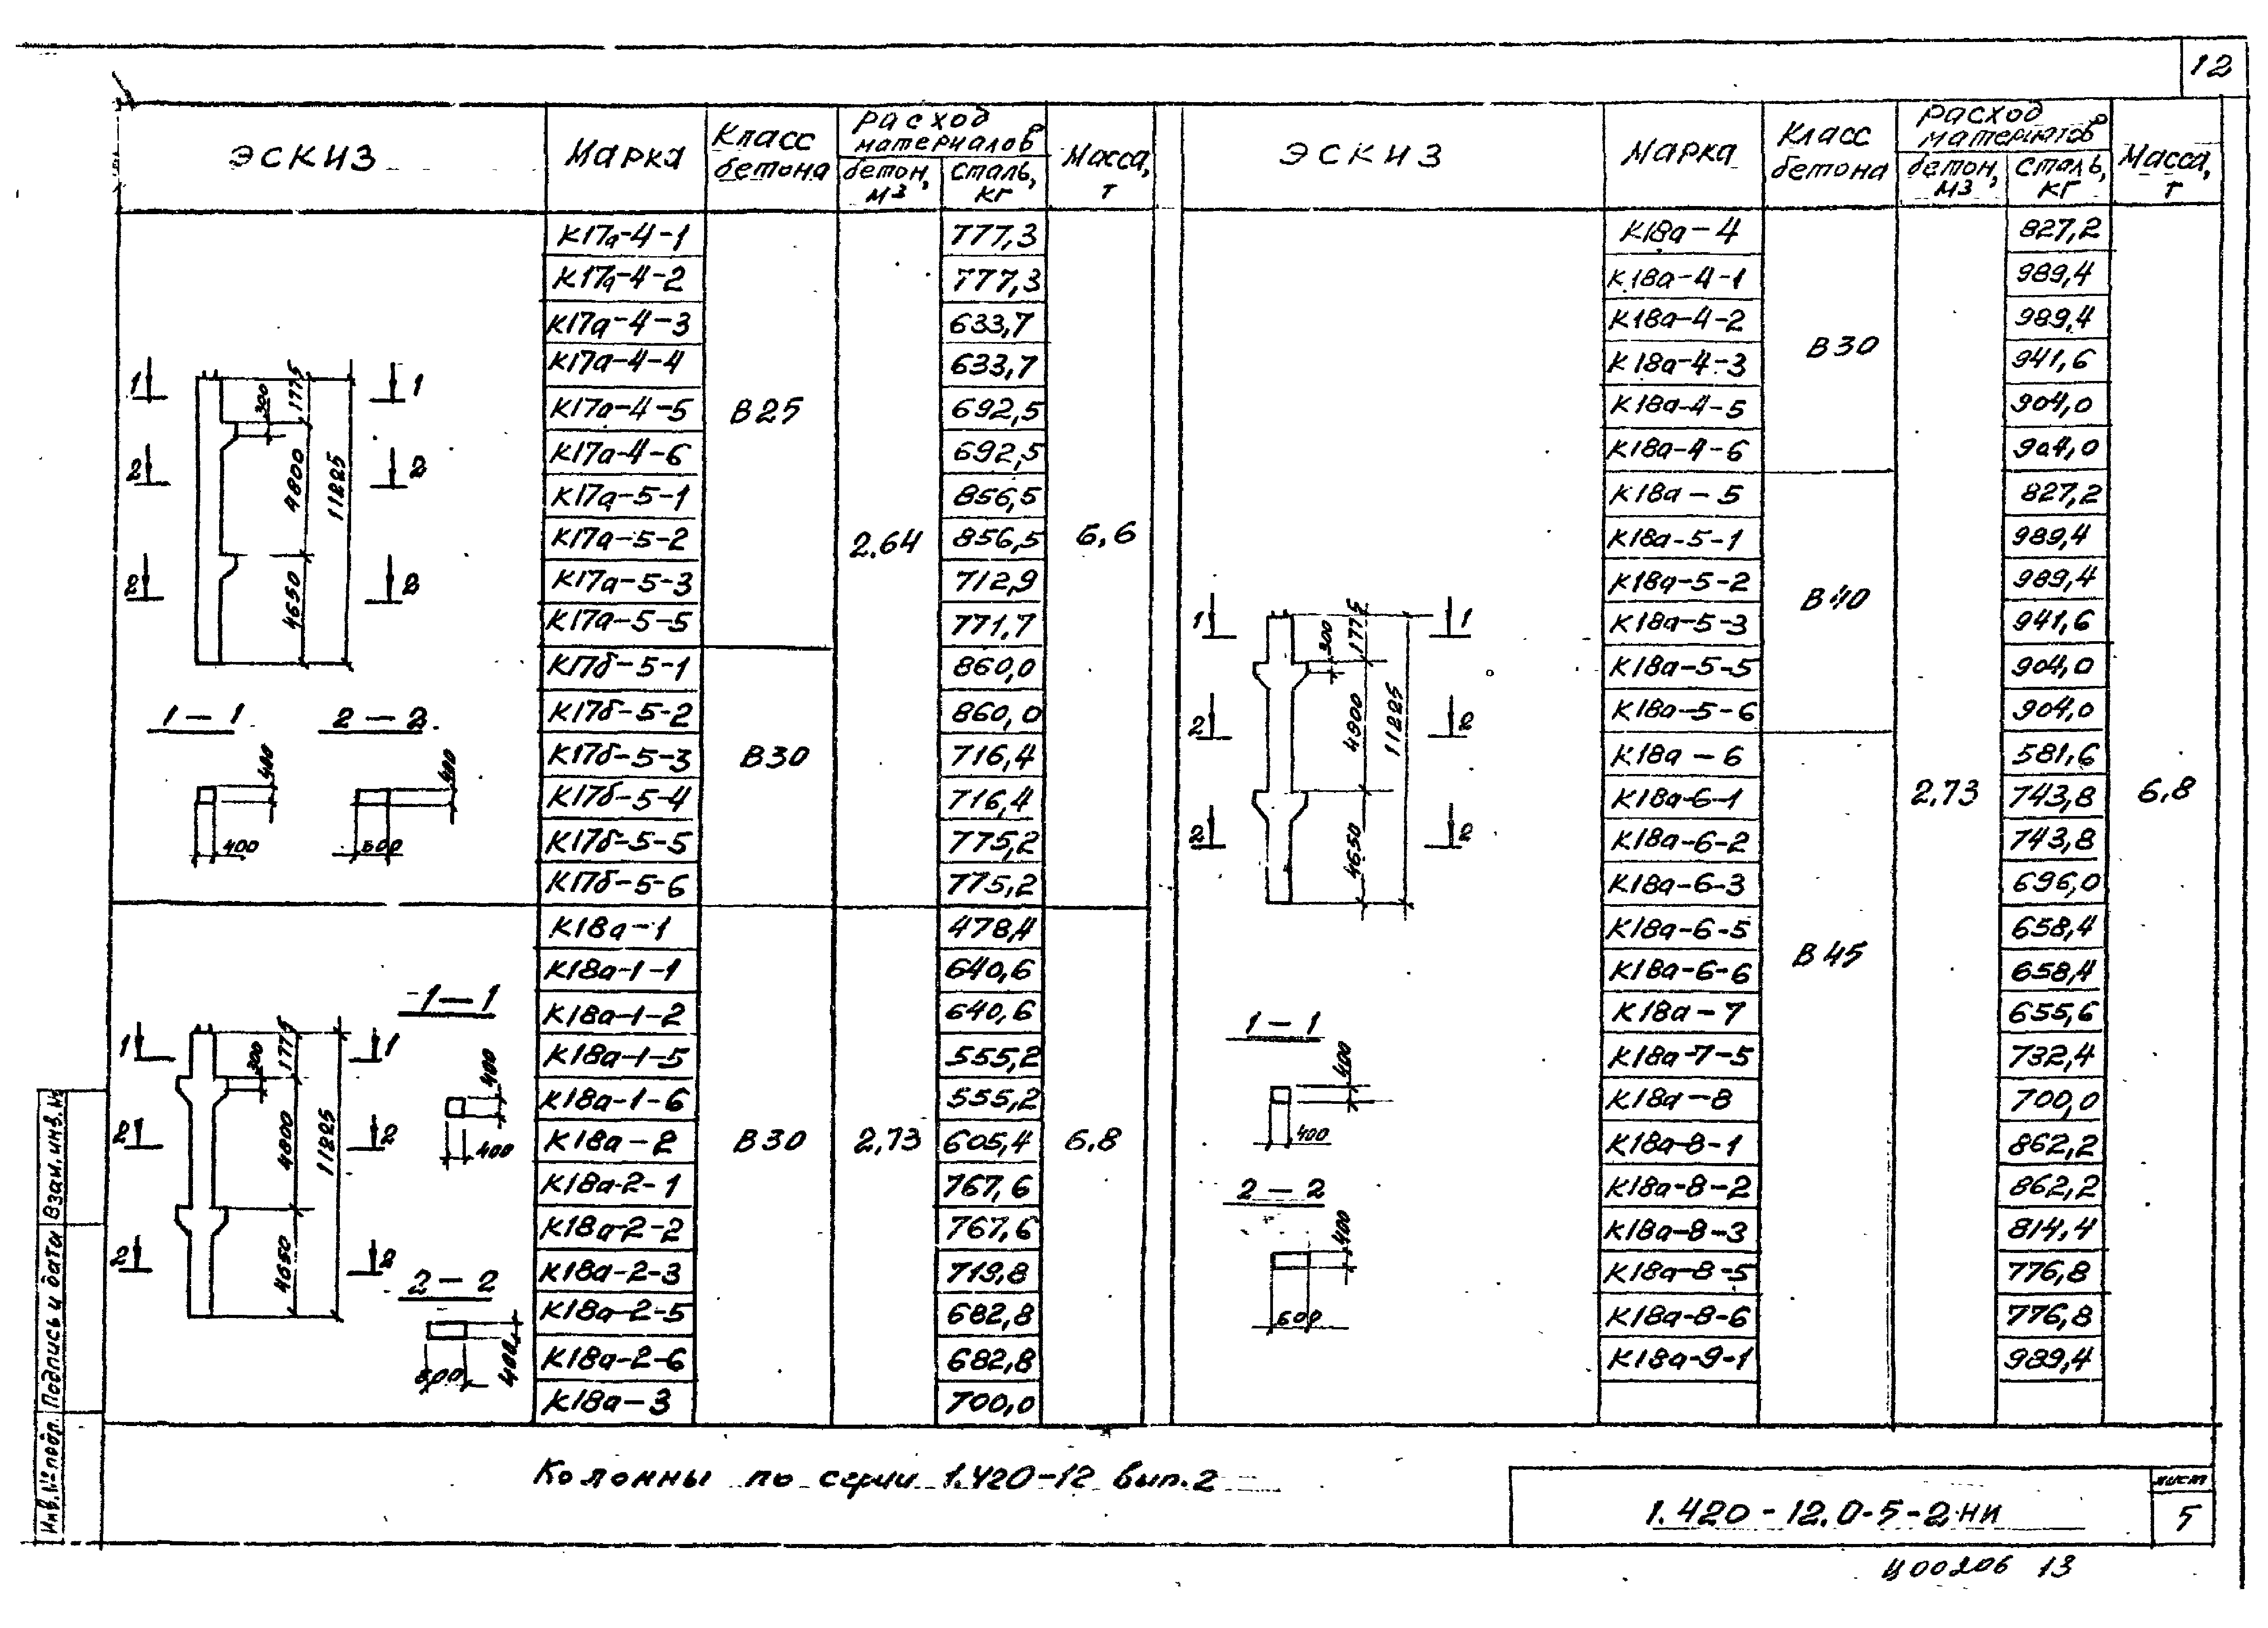 12
ЭСКИЗ
Марка
Класс бетона
Расход материалов
бетон, м3
сталь, кг
Масса, т
К17а-4-1 777,3
К17а-4-2 777,3
К17а-4-3 633,7
К17а-4-4 633,7
К17а-4-5 692,5
К17а-4-6 692,5
К17а-5-1 856,5
К17а-5-2 856,5
К17а-5-3 712,9
К17а-5-5 771,7
В25
К17б-5-1 860,0
К17б-5-2 860,0
К17б-5-3 716,4
К17б-5-4 716,4
К17б-5-5 775,2
К17б-5-6 775,2
В30
2.64
6,6
1 1
2 2
2 2
300
1775
4800
4650
11225
1-1
2-2
400
400
400
600
К18а-1 478,4
К18а-1-1 640,6
К18а-1-2 640,6
К18а-1-5 555,2
К18а-1-6 555,2
К18а-2 605,4
К18а-2-1 767,6
К18а-2-2 767,6
К18а-2-3 719,8
К18а-2-5 682,8
К18а-2-6 682,8
К18а-3 700,0
В30
2,73
6.8
1 1
2 2
2 2
300
1775
4800
4650
11225
1-1
400
400
2-2
600
400
ЭСКИЗ
Марка
Класс бетона
Расход материалов
бетон, м3
сталь, кг
Масса, т
К18а-4 827,2
К18а-4-1 989,4
К18а-4-2 989,4
К18а-4-3 941,6
К18а-4-5 904,0
К18а-4-6 904,0
В30
К18а-5 827,2
К18а-5-1 989,4
К18а-5-2 989,4
К18а-5-3 941,6
К18а-5-5 904,0
К18а-5-6 904,0
В40
К18а-6 581,6
К18а-6-1 743,8
К18а-6-2 743,8
К18а-6-3 696,0
К18а-6-5 658,4
К18а-6-6 658,4
К18а-7 655,6
К18а-7-5 732,4
К18а-8 700,0
К18а-8-1 862,2
К18а-8-2 862,2
К18а-8-3 814,4
К18а-8-5 776,8
К18а-8-6 776,8
К18а-9-1 989,4
В45
2,73
6.8
1 1
2 2
2 2
300
1775
4800
4650
11225
1-1
400
400
2-2
400
600
Колонны по серии 1.420-12 вып.2
1.420-12.0-5-2НИ
лист
5
Ц00206 13
Инв.№ подл.
Подпись и дата
Взам.инв.№